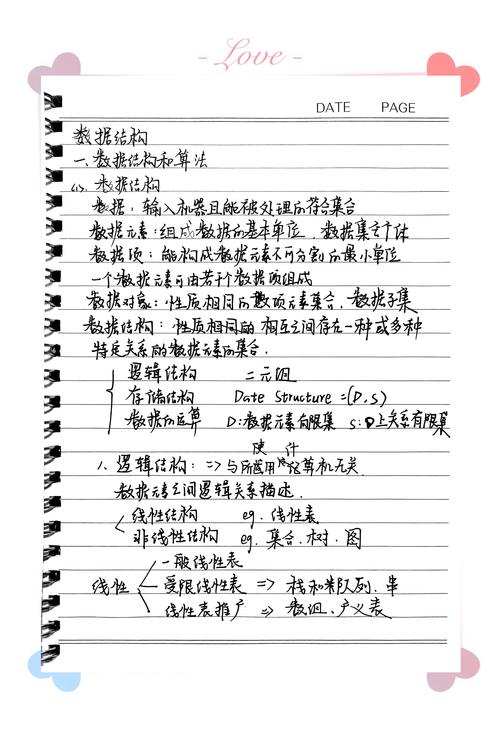 - Love -
DATE PAGE
数据结构
一、数据结构和算法
(1). 数据结构
数据：输入机器且能被处理的符合集合
数据元素：组成数据的基本单位，数据集合个体
数据项：能构成数据元素不可分割的最小单位
一个数据元素可由若干个数据项组成
数据对象：性质相同的数项元素集合，数据子集
数据结构：性质相同的 相互之间存在一种或多种
特定关系的数据元素的集合.
逻辑结构 二元组
存储结构 Date Structure =(D,S)
数据的运算 D:数据元素有限集 S:D上关系有限集
硬件
1、逻辑结构：=> 与所 用 计算机无关.
数据元素之间逻辑关系描述.
线性结构 eg. 线性表
非线性结构 eg. 集合、树、图
一般线性表
线性 受限线性表 => 栈和队列、串
线性表推广 => 数组、广义表